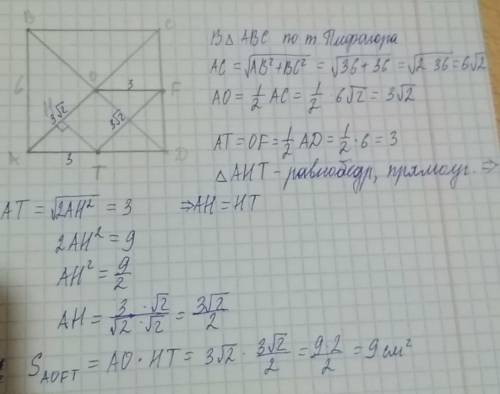 B C
В △ ABC по т. Пифагора
AC = √AB² + BC² = √36 + 36 = √2·36 = 6√2
6 O 3 F
AO = 1/2 AC = 1/2 · 6√2 = 3√2
H 3√2 3√2
AT = OF = 1/2 AD = 1/2 · 6 = 3
A 3 T D
△ AHT - равнобедр, прямоуг. ⇒
AT = √2AH² = 3 ⇒ AH = HT
2AH² = 9
AH² = 9/2
AH = 3 · √2 / √2 · √2 = 3√2/2
S AOFT = AO · HT = 3√2 · 3√2/2 = 9·2/2 = 9 см²